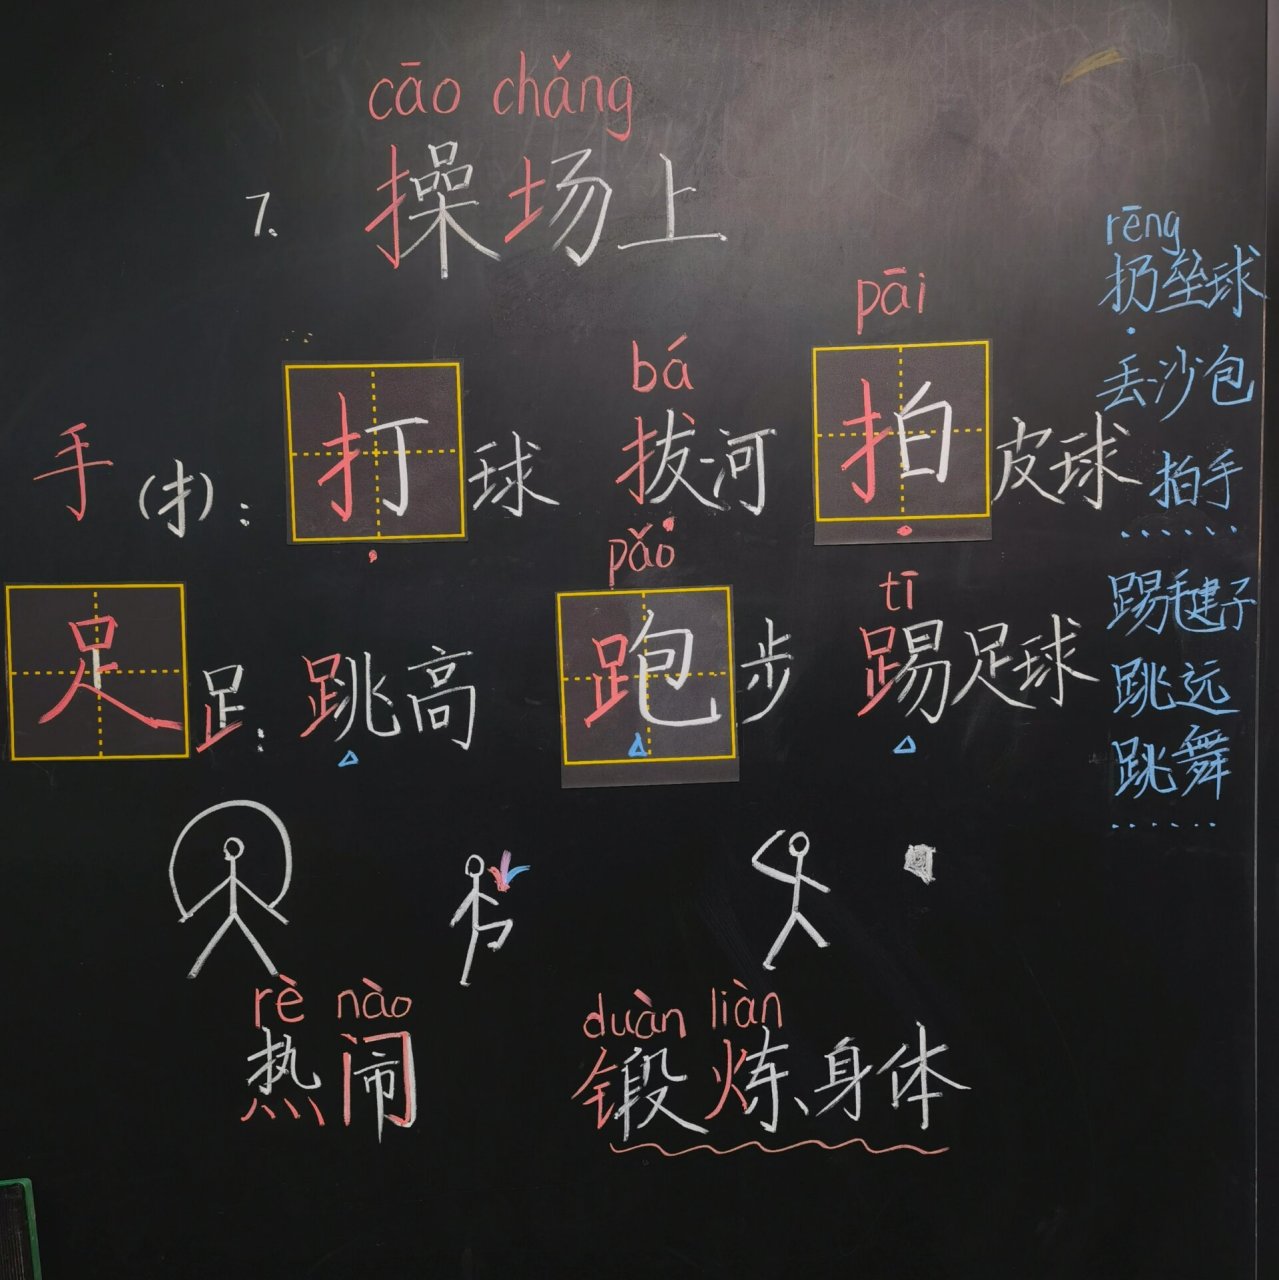 cāo chǎng
7. 操场上
bá pāi
手(扌): 打球 拔河 拍皮球
pǎo tī
足 𧾷: 跳高 跑步 踢足球
rè nào duàn liàn
热闹 锻炼身体
rēng
扔垒球
丢沙包
拍手
......
踢毽子
跳远
跳舞
......